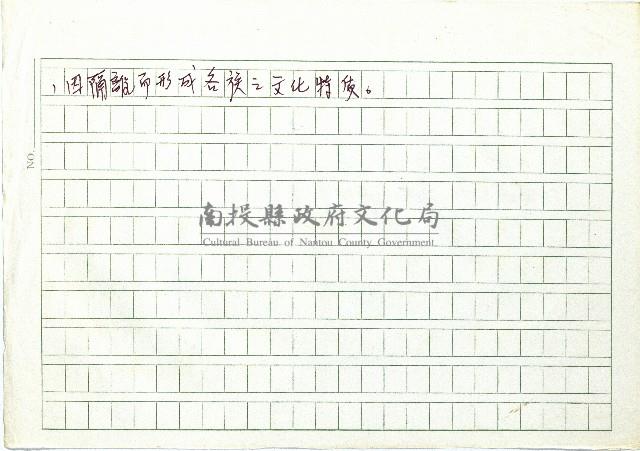 ，因隔離而形成各族之文化特質。
NO.
南投縣政府文化局
Cultural Bureau of Nantou County Government